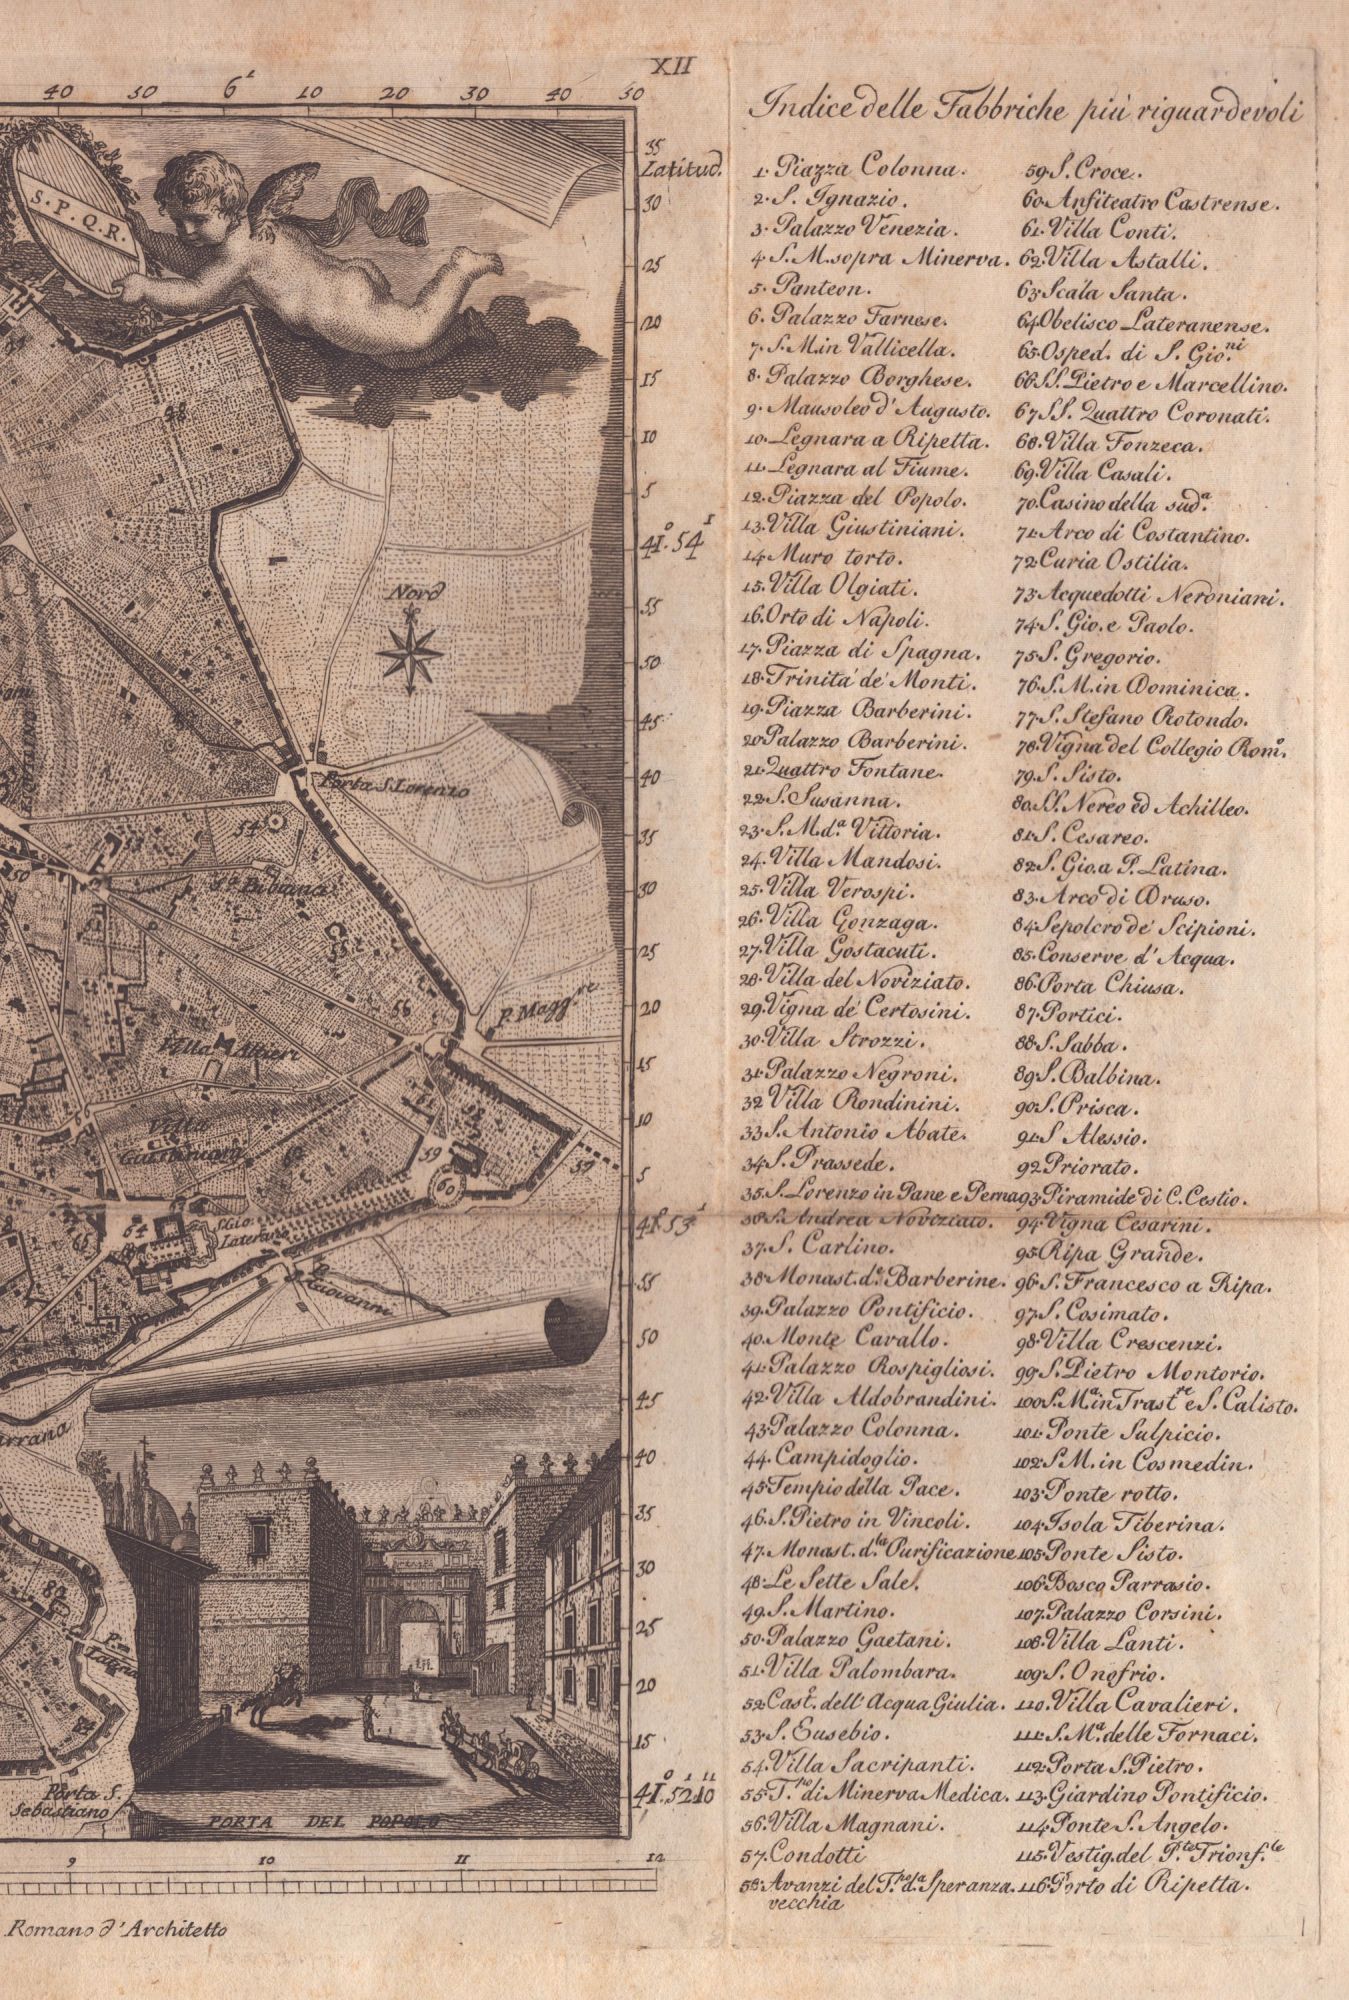 XII
40 50 6' 10 20 30 40 50
Latitud.
35
30
25
20
15
10
5
41°.54'
55
50
45
40
35
30
25
20
15
10
5
41°.53'
55
50
45
40
35
30
25
20
15
41°.52'10''
S.P.Q.R.
Nord
Porta S. Lorenzo
54
53
50
S.ª Bibiana
55
51
56
P. Magg.re
Villa Altieri
Villa Giustiniani
61
58
59
60
57
62
63
64
65
S. Gio. Laterano
P. Giovanni
ESQUILINO
Porta Latina
Porta S. Sebastiano
84
PORTA DEL POPOLO
9 10 11 12
Romano d'Architetto
Indice delle Fabbriche più riguardevoli
1. Piazza Colonna.
2. S. Ignazio.
3. Palazzo Venezia.
4. S. M. sopra Minerva.
5. Panteon.
6. Palazzo Farnese.
7. S. M. in Vallicella.
8. Palazzo Borghese.
9. Mausoleo d'Augusto.
10. Legnara a Ripetta.
11. Legnara al Fiume.
12. Piazza del Popolo.
13. Villa Giustiniani.
14. Muro torto.
15. Villa Olgiati.
16. Orto di Napoli.
17. Piazza di Spagna.
18. Trinita' de' Monti.
19. Piazza Barberini.
20. Palazzo Barberini.
21. Quattro Fontane.
22. S. Susanna.
23. S. M. d.ª Vittoria.
24. Villa Mandosi.
25. Villa Verospi.
26. Villa Gonzaga.
27. Villa Gostacuti.
28. Villa del Noviziato.
29. Vigna de' Certosini.
30. Villa Strozzi.
31. Palazzo Negroni.
32 Villa Rondinini.
33. S. Antonio Abate.
34. S. Prassede.
35. S. Lorenzo in Pane e Perna
36. S. Andrea Noviziato.
37. S. Carlino.
38. Monast. d.e Barberine.
39. Palazzo Pontificio.
40. Monte Cavallo.
41. Palazzo Rospigliosi.
42. Villa Aldobrandini.
43. Palazzo Colonna.
44. Campidoglio.
45. Tempio della Pace.
46. S. Pietro in Vincoli.
47. Monast. d.la Purificazione
48. Le Sette Sale.
49. S. Martino.
50. Palazzo Gaetani.
51. Villa Palombara.
52. Cast.o dell'Acqua Giulia.
53. S. Eusebio.
54. Villa Sacripanti.
55. T.ho di Minerva Medica.
56. Villa Magnani.
57. Condotti
58. Avanzi del T.ho d.ª Speranza
vecchia
59. S. Croce.
60. Anfiteatro Castrense.
61. Villa Conti.
62. Villa Astalli.
63. Scala Santa.
64. Obelisco Lateranense.
65. Osped. di S. Gio.ni
66. SS. Pietro e Marcellino.
67. SS. Quattro Coronati.
68. Villa Fonzeca.
69. Villa Casali.
70. Casino della sud.ª
71. Arco di Costantino.
72. Curia Ostilia.
73. Acquedotti Neroniani.
74. S. Gio. e Paolo.
75. S. Gregorio.
76. S. M. in Dominica.
77. S. Stefano Rotondo.
78. Vigna del Collegio Rom.o
79. S. Sisto.
80. SS. Nereo ed Achilleo.
81. S. Cesareo.
82. S. Gio. a P. Latina.
83. Arco di Druso.
84. Sepolcro de' Scipioni.
85. Conserve d'Acqua.
86. Porta Chiusa.
87. Portici.
88. S. Sabba.
89. S. Balbina.
90. S. Prisca.
91. S Alessio.
92. Priorato.
93. Piramide di C. Cestio.
94. Vigna Cesarini.
95. Ripa Grande.
96. S. Francesco a Ripa.
97. S. Cosimato.
98. Villa Crescenzi.
99. S. Pietro Montorio.
100. S. M.ª in Trast.re e S. Calisto.
101. Ponte Sulpicio.
102. S. M. in Cosmedin.
103. Ponte rotto.
104. Isola Tiberina.
105. Ponte Sisto.
106. Bosco Parrasio.
107. Palazzo Corsini.
108. Villa Lanti.
109. S. Onofrio.
110. Villa Cavalieri.
111. S. M.ª delle Fornaci.
112. Porta S. Pietro.
113. Giardino Pontificio.
114. Ponte S. Angelo.
115. Vestig. del P.te Trionf.le
116. Porto di Ripetta.